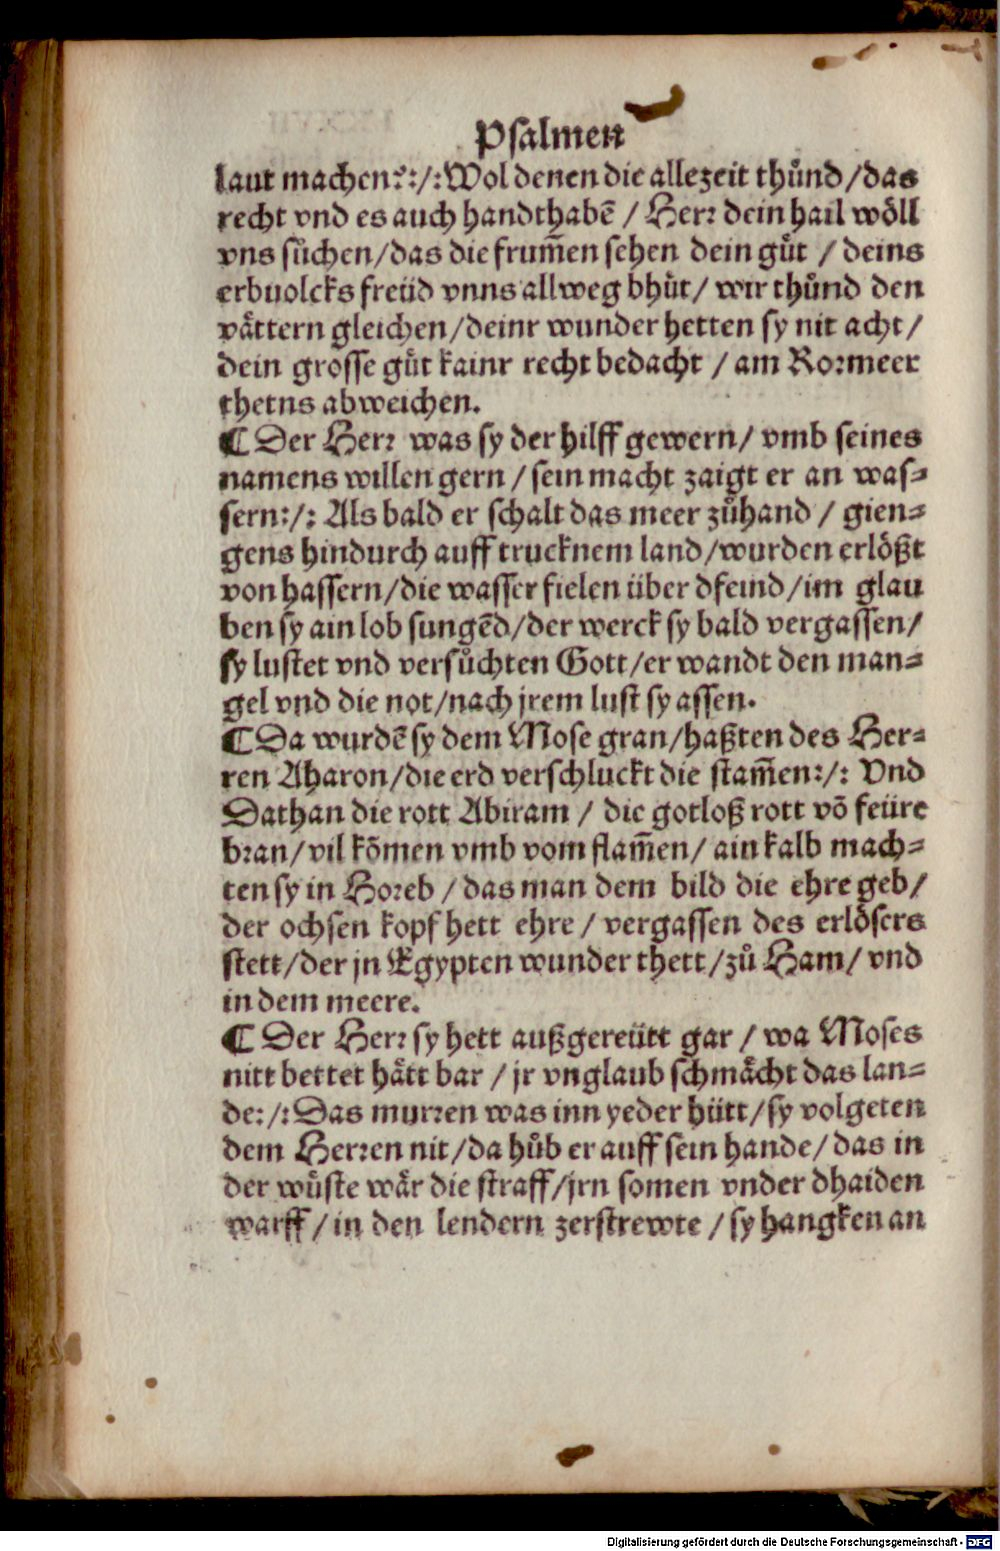 Psalmen
laut machen?:/:Wol denen die allezeit thůnd/das
recht vnd es auch handthabē / Herr dein hail wöll
vns sůchen/das die frum̄en sehen dein gůt / deins
erbuolcks freüd vnns allweg bhůt/ wir thůnd den
vättern gleichen/deinr wunder hetten sy nit acht/
dein grosse gůt kainr recht bedacht / am Rormeer
thetns abweichen.
¶ Der Herr was sy der hilff gewern/ vmb seines
namens willen gern / sein macht zaigt er an was⸗
sern:/: Als bald er schalt das meer zůhand / gien⸗
gens hindurch auff trucknem land/wurden erlößt
von hassern/die wasser fielen über dfeind/im glau
ben sy ain lob sungēd/der werck sy bald vergassen/
sy lustet vnd versůchten Gott/er wandt den man⸗
gel vnd die not/nach jrem lust sy assen.
¶ Da wurdē sy dem Mose gran/haßten des Her⸗
ren Aharon/die erd verschluckt die stam̄en:/: Vnd
Dathan die rott Abiram / die gotloß rott vō feüre
bran/vil kōmen vmb vom flam̄en/ ain kalb mach⸗
ten sy in Horeb / das man dem bild die ehre geb/
der ochsen kopf hett ehre / vergassen des erlösers
stett/der jn Egypten wunder thett/zů Ham/ vnd
in dem meere.
¶ Der Herr sy hett außgereütt gar / wa Moses
nitt bettet hätt bar / jr vnglaub schmächt das lan⸗
de:/:Das murren was inn yeder hütt/sy volgeten
dem Herren nit/da hůb er auff sein hande/das in
der wůste wär die straff/jrn somen vnder dhaiden
warff / in den lendern zerstrewte / sy hangken an
Digitalisierung gefördert durch die Deutsche Forschungsgemeinschaft - DFG